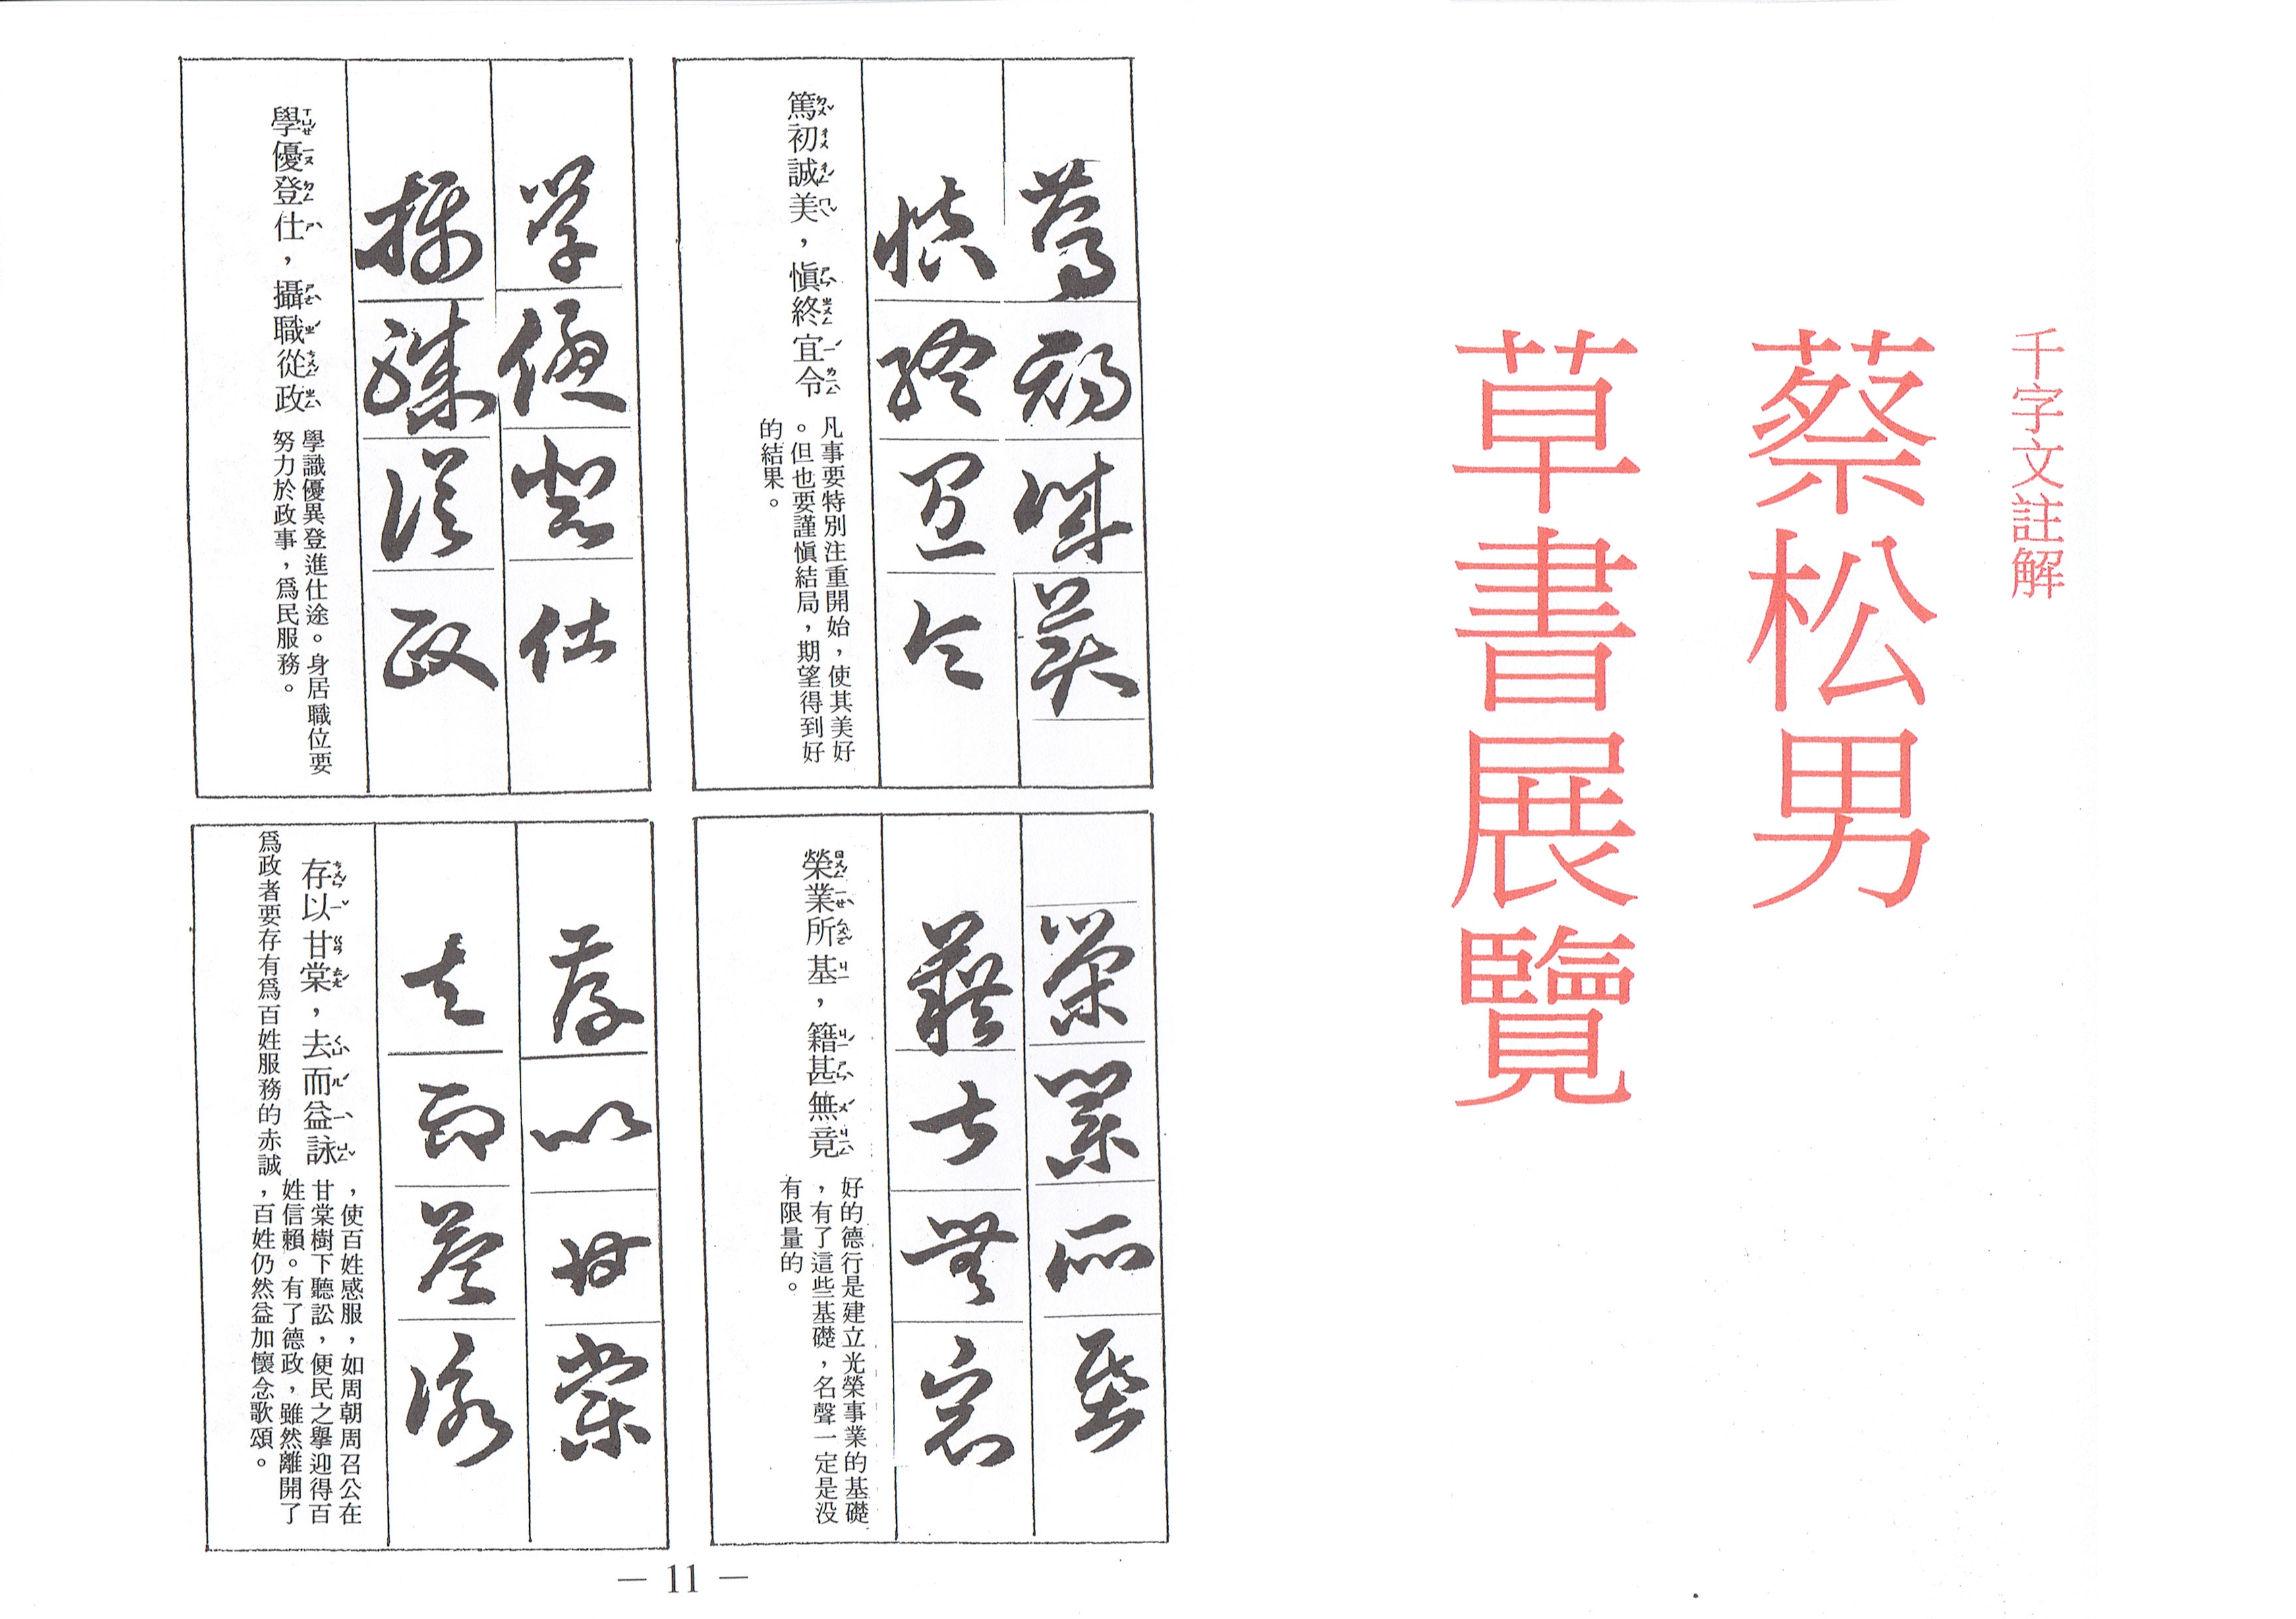 千字文註解
蔡松男
草書展覽
篤初誠美
慎終宜令
篤初誠美，慎終宜令
ㄉㄨˇ ㄔㄨ ㄔㄥˊ ㄇㄟˇ ㄕㄣˋ ㄓㄨㄥ ㄧˊ ㄌㄧㄥˋ
凡事要特別注重開始，使其美好
。但也要謹慎結局，期望得到好
的結果。
榮業所基
藉甚無竟
榮業所基，籍甚無竟
ㄖㄨㄥˊ ㄧㄝˋ ㄙㄨㄛˇ ㄐㄧ ㄐㄧˊ ㄕㄣˋ ㄨˊ ㄐㄧㄥˋ
好的德行是建立光榮事業的基礎
，有了這些基礎，名聲一定是没
有限量的。
学優登仕
攝職従政
學優登仕，攝職從政
ㄒㄩㄝˊ ㄧㄡ ㄉㄥ ㄕˋ ㄕㄜˋ ㄓˊ ㄘㄨㄥˊ ㄓㄥˋ
學識優異登進仕途。身居職位要
努力於政事，爲民服務。
存以甘棠
去而益詠
存以甘棠，去而益詠
ㄘㄨㄣˊ ㄧˇ ㄍㄢ ㄊㄤˊ ㄑㄩˋ ㄦˊ ㄧˋ ㄩㄥˇ
爲政者要存有爲百姓服務的赤誠
，使百姓感服，如周朝周召公在
甘棠樹下聽訟，便民之擧迎得百
姓信賴。有了德政，雖然離開了
，百姓仍然益加懷念歌頌。
— 11 —